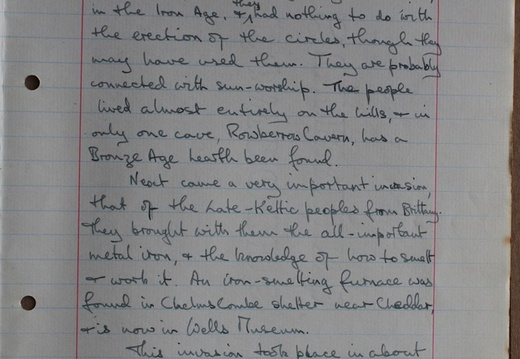 in the Iron Age, & they had nothing to do with
the erection of the circles, though they
may have used them. They are probably
connected with sun-worship. The people
lived almost entirely on the hills, & in
only one cave, Rowberrow Cavern, has a
Bronze Age hearth been found.
Next came a very important invasion,
that of the Late-Keltic peoples from Brittany.
They brought with them the all-important
metal iron, & the knowledge of how to smelt
& work it. An iron-smelting furnace was
found in Chelmscombe shelter near Cheddar,
& is now in Wells Museum.
This invasion took place in about